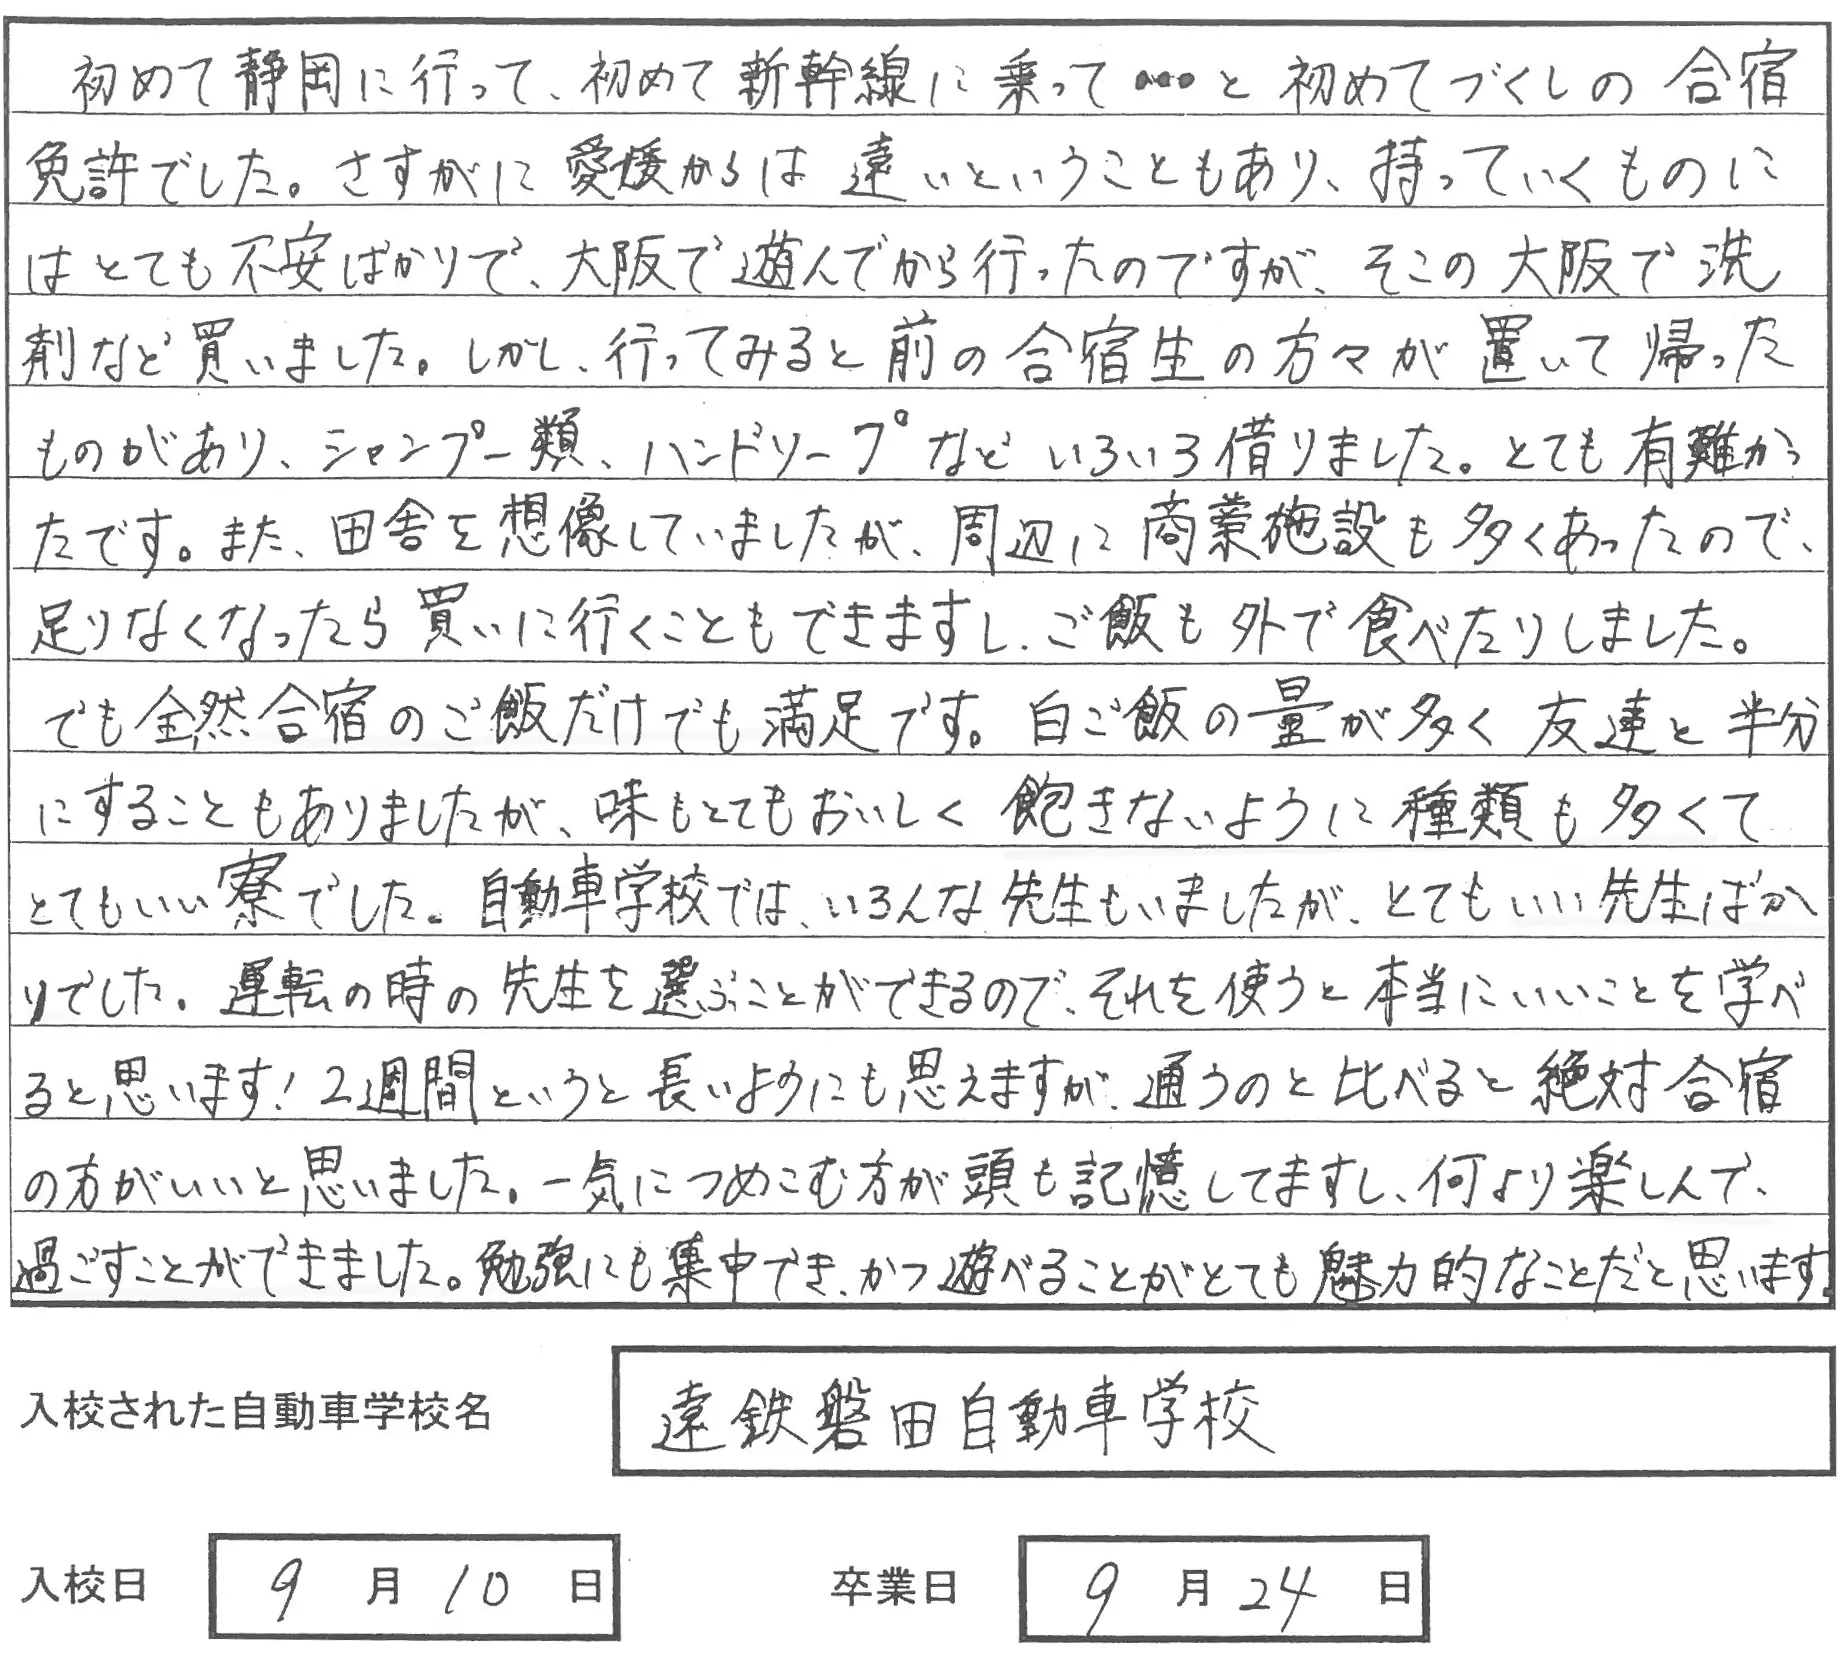 初めて静岡に行って、初めて新幹線に乗って…と初めてづくしの合宿
免許でした。さすがに愛媛からは遠いということもあり、持っていくものに
はとても不安ばかりで、大阪で遊んでから行ったのですが、そこの大阪で洗
剤など買いました。しかし、行ってみると前の合宿生の方々が置いて帰った
ものがあり、シャンプー類、ハンドソープなどいろいろ借りました。とても有難かっ
たです。また、田舎を想像していましたが、周辺に商業施設も多くあったので、
足りなくなったら買いに行くこともできますし、ご飯も外で食べたりしました。
でも全然合宿のご飯だけでも満足です。白ご飯の量が多く友達と半分
にすることもありましたが、味もとてもおいしく飽きないように種類も多くて
とてもいい寮でした。自動車学校では、いろんな先生もいましたが、とてもいい先生ばか
りでした。運転の時の先生を選ぶことができるので、それを使うと本当にいいことを学べ
ると思います!2週間というと長いようにも思えますが、通うのと比べると絶対合宿
の方がいいと思いました。一気につめこむ方が頭も記憶してますし、何より楽しんで、
過ごすことができました。勉強にも集中でき、かつ遊べることがとても魅力的なことだと思います。
入校された自動車学校名 遠鉄磐田自動車学校
入校日 9月10日 卒業日 9月24日